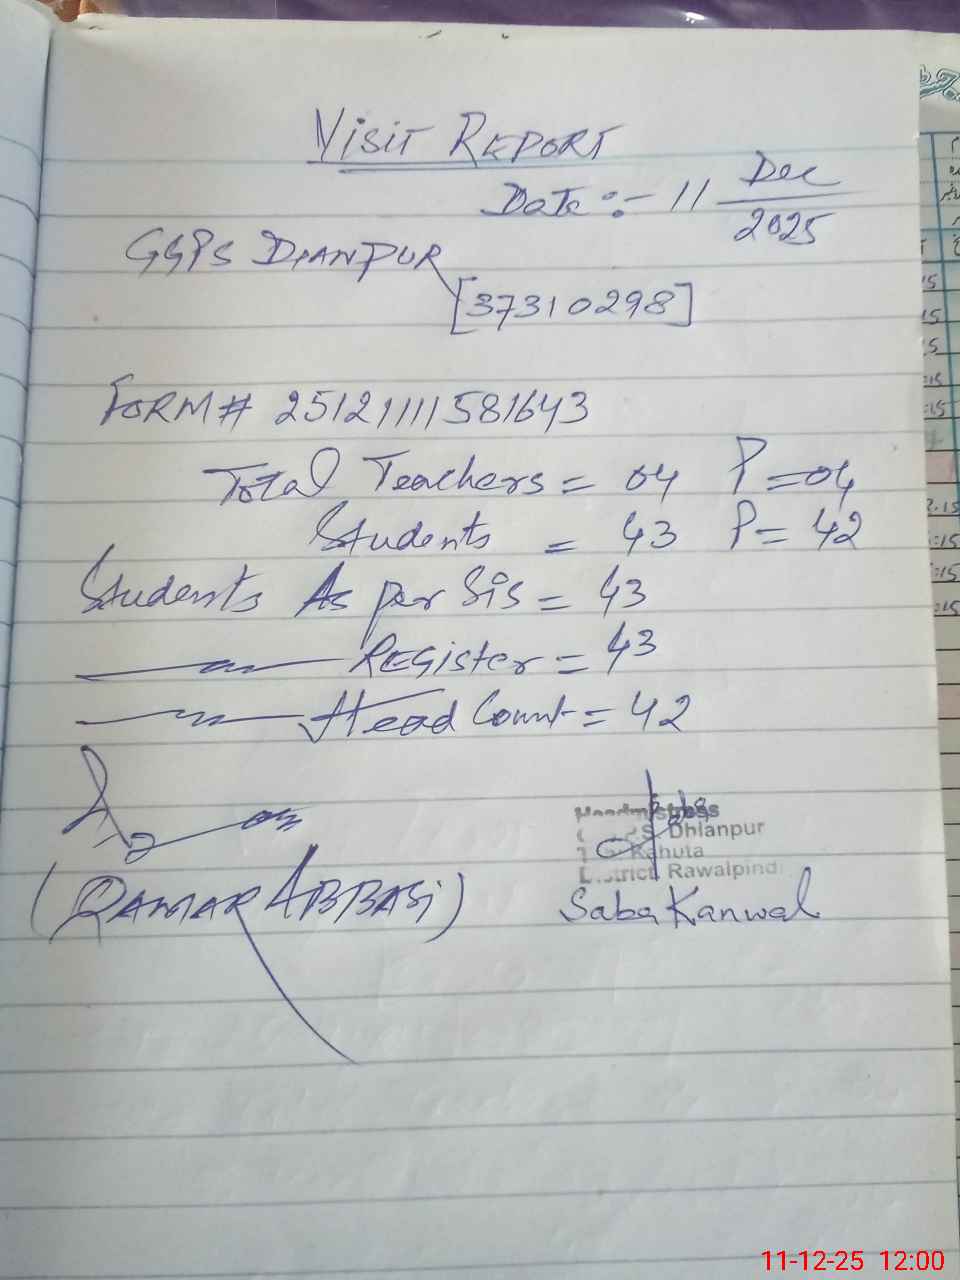 VISIT REPORT
Date :- 11 Dec
2025
GGPS DIANPUR
[37310298]
FORM # 25121111581643
Total Teachers = 04 P = 04
Students = 43 P = 42
Students As per Sis = 43
Register = 43
Head Count = 42
(QAMAR ABBASI)
Headmistress
Dhianpur
Kahuta
District Rawalpindi
Saba Kanwal
11-12-25 12:00